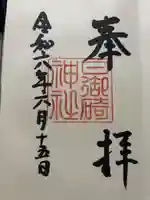 奉拝
日御碕
神社
令和六年六月十五日